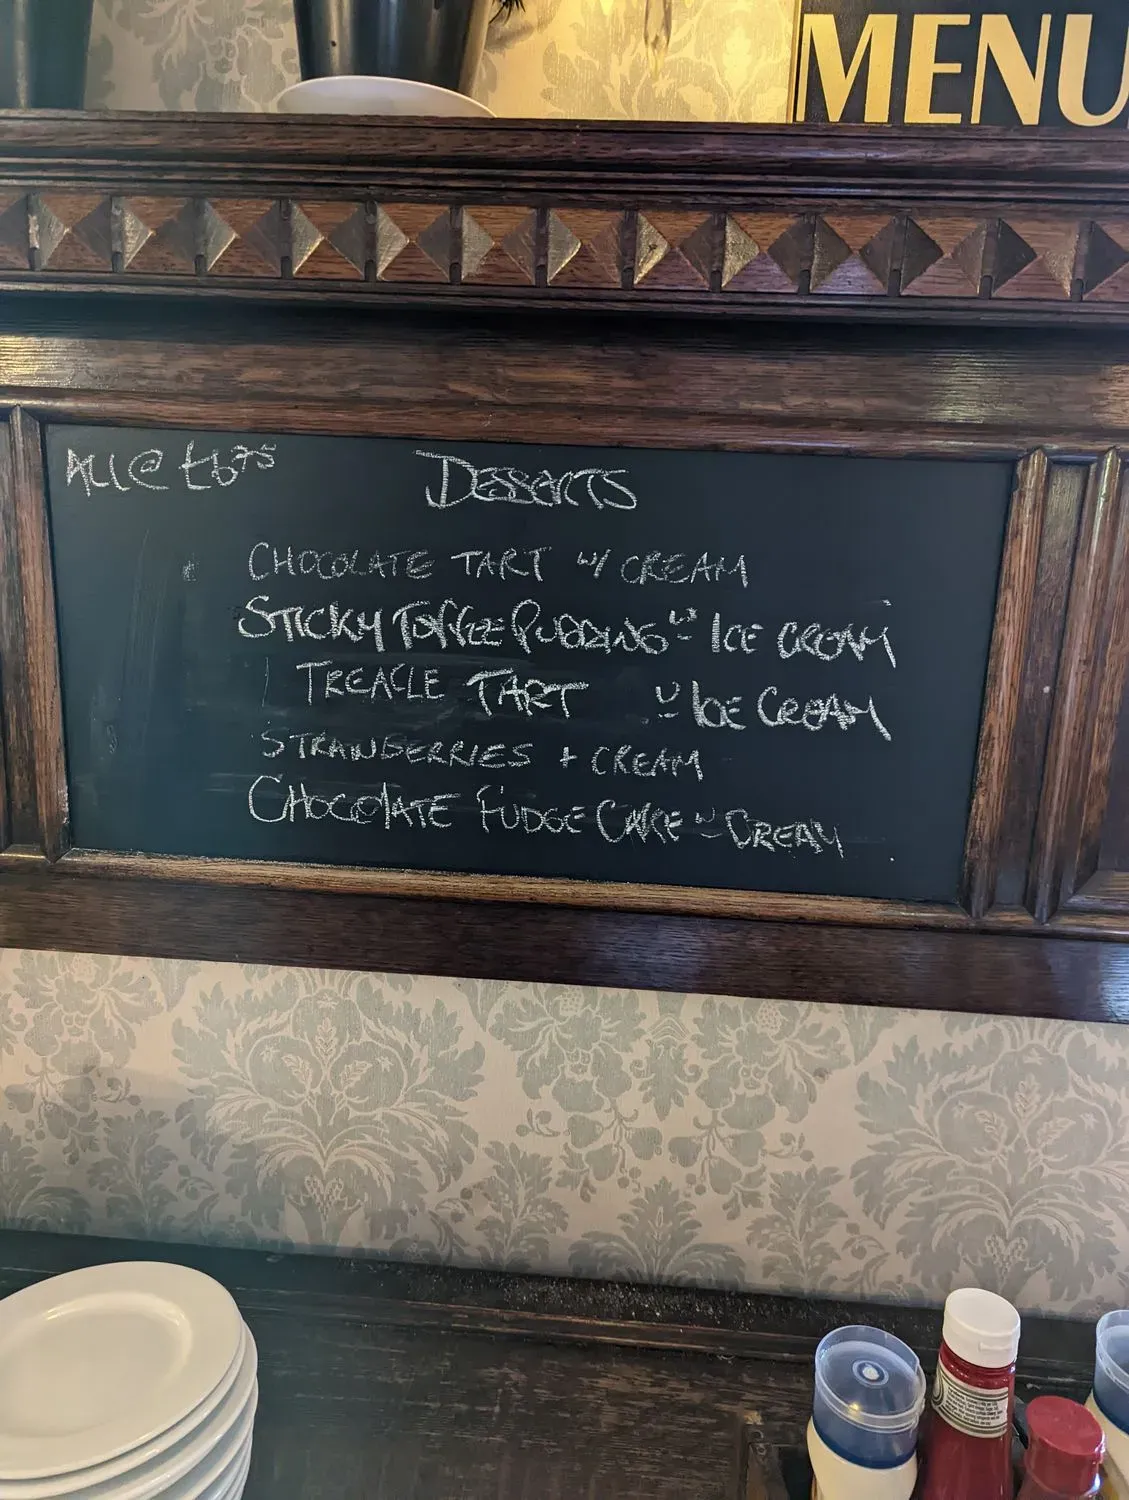 MENU
ALL @ £6.75
Desserts
CHOCOLATE TART w/ CREAM
STICKY TOFFEE PUDDING w/ ICE CREAM
TREACLE TART w/ ICE CREAM
STRAWBERRIES + CREAM
CHOCOLATE FUDGE CAKE w/ CREAM